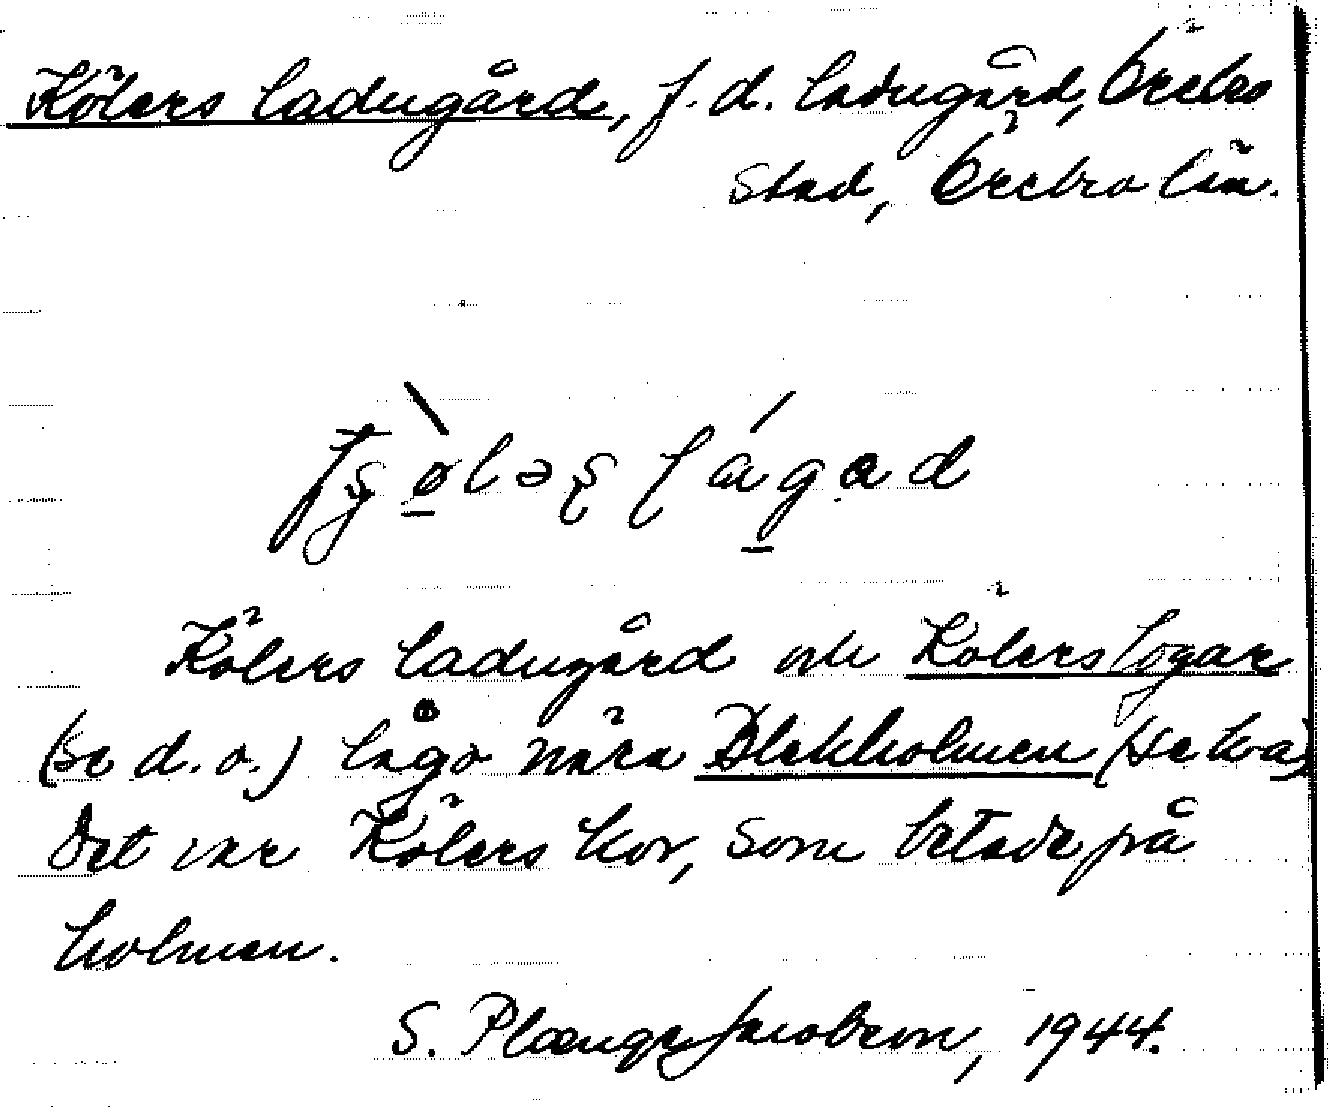 Kölers ladugård, f.d. ladugård, Örebro
stad, Örebro län.
Kölers ladugård och Kölers logar
(se d.o.) lågo nära Alekholmen (se kva)
Det var Kölers kor, som betade på
holmen.
S. Plænge Jacobson, 1944.